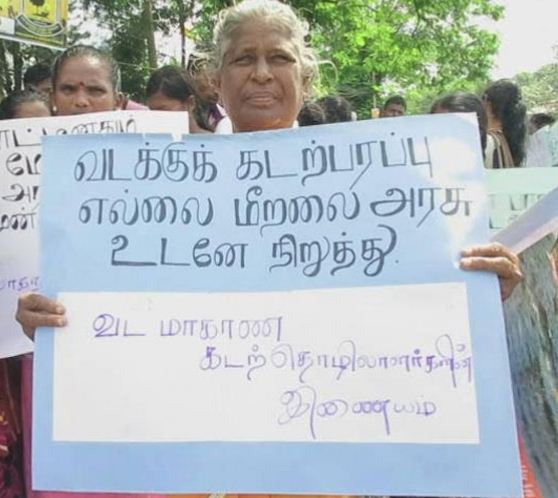 வடக்குக் கடற்பரப்பு
எல்லை மீறலை அரசு
உடனே நிறுத்து.
வட மாகாண
கடற்தொழிலாளர்களின்
இணையம்